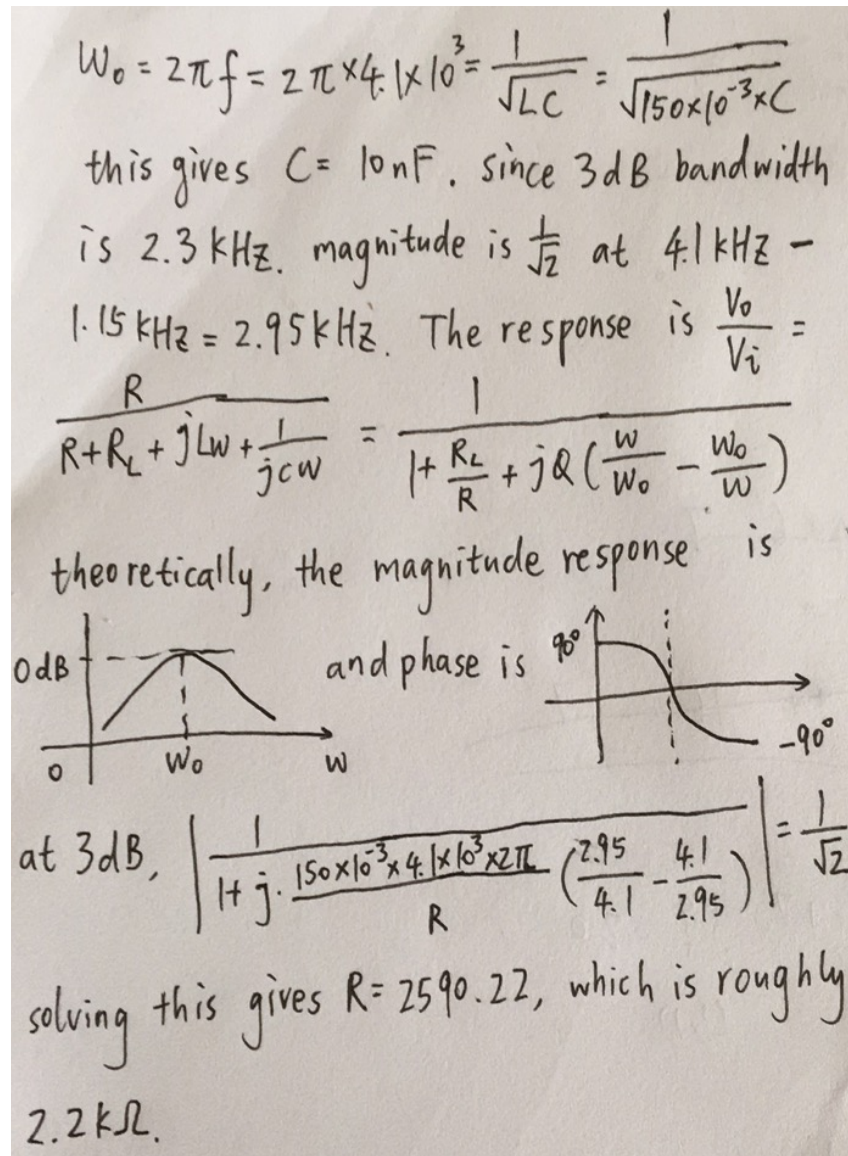 W₀ = 2πf = 2π×4.1×10³ = 1/√LC = 1/√150×10⁻³×C
this gives C= 10nF. since 3dB bandwidth
is 2.3 kHz. magnitude is 1/√2 at 4.1 kHz −
1.15 kHz = 2.95 kHz. The response is Vo/Vi =
R/(R+R_L + jLw + 1/jcw) = 1/(1+ R_L/R + jQ(w/w₀ − w₀/w))
theoretically, the magnitude response is
0dB and phase is 90°
-90°
0 W₀ w
at 3dB, |1/(1+ j· 150×10⁻³×4.1×10³×2π/R (2.95/4.1 − 4.1/2.95))| = 1/√2
solving this gives R= 2590.22, which is roughly
2.2kΩ.